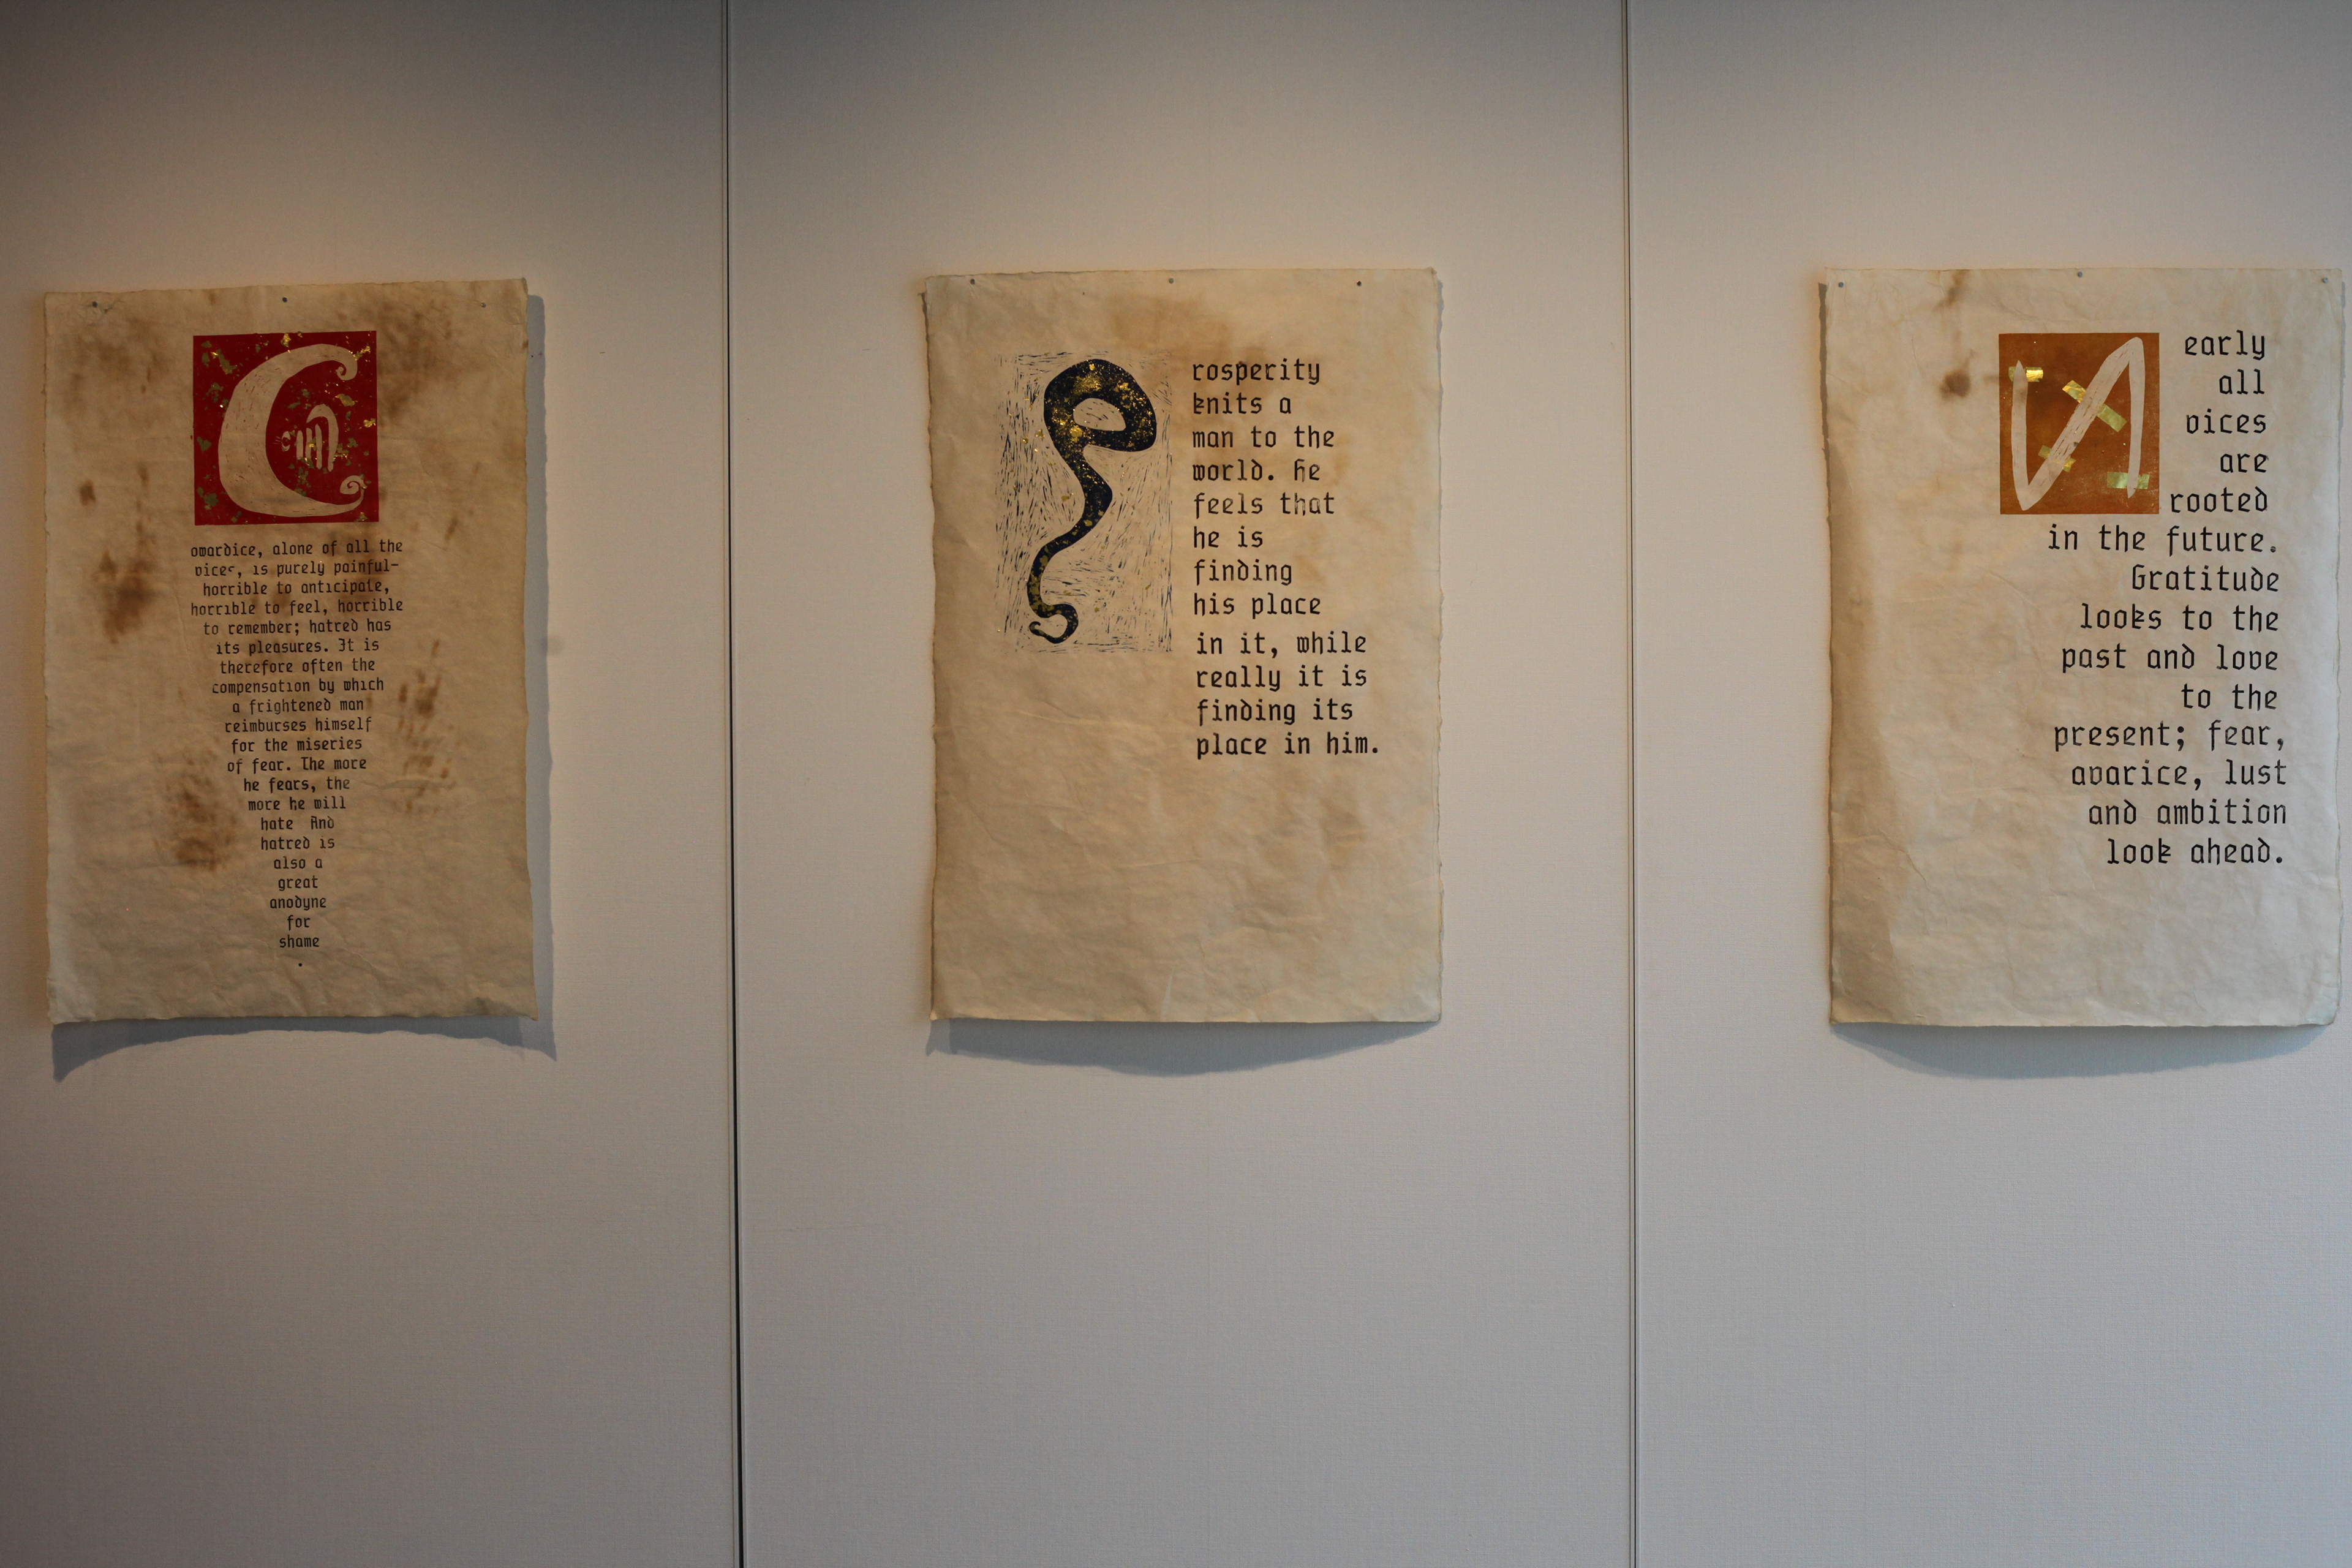 Cowardice, alone of all the
vices, is purely painful-
horrible to anticipate,
horrible to feel, horrible
to remember; hatred has
its pleasures. It is
therefore often the
compensation by which
a frightened man
reimburses himself
for the miseries
of fear. The more
he fears, the
more he will
hate And
hatred is
also a
great
anodyne
for
shame
.
Prosperity
knits a
man to the
world. He
feels that
he is
finding
his place
in it, while
really it is
finding its
place in him.
Nearly
all
vices
are
rooted
in the future.
Gratitude
looks to the
past and love
to the
present; fear,
avarice, lust
and ambition
look ahead.